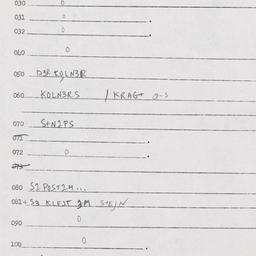 030 0
031 0
032 0
040 0
050 D3R KOLN3R
060 KOLN3RS / KRAGT
070 S+N2PS
071
072 0
073
080 S2 POST2M...
081+ S3 KL3JT 3M
090 0
100 0